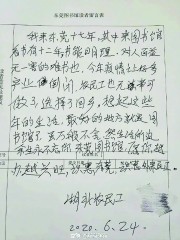 东莞图书馆读者留言表
我来东莞十七年，其中来图书馆
看书有十二年，书能明理，对人百益
无一害的唯书也，今年疫情让好多
产业倒闭，农民工也无事可
做了，选择了回乡，想起这些
年的生活，最好的地方就是图
书馆了，虽万般不舍，然生活所迫，
余生永不忘你，东莞图书馆，愿你越
办越兴旺，识惠东莞，识惠外来民工。
湖北农民工
2020.6.24.